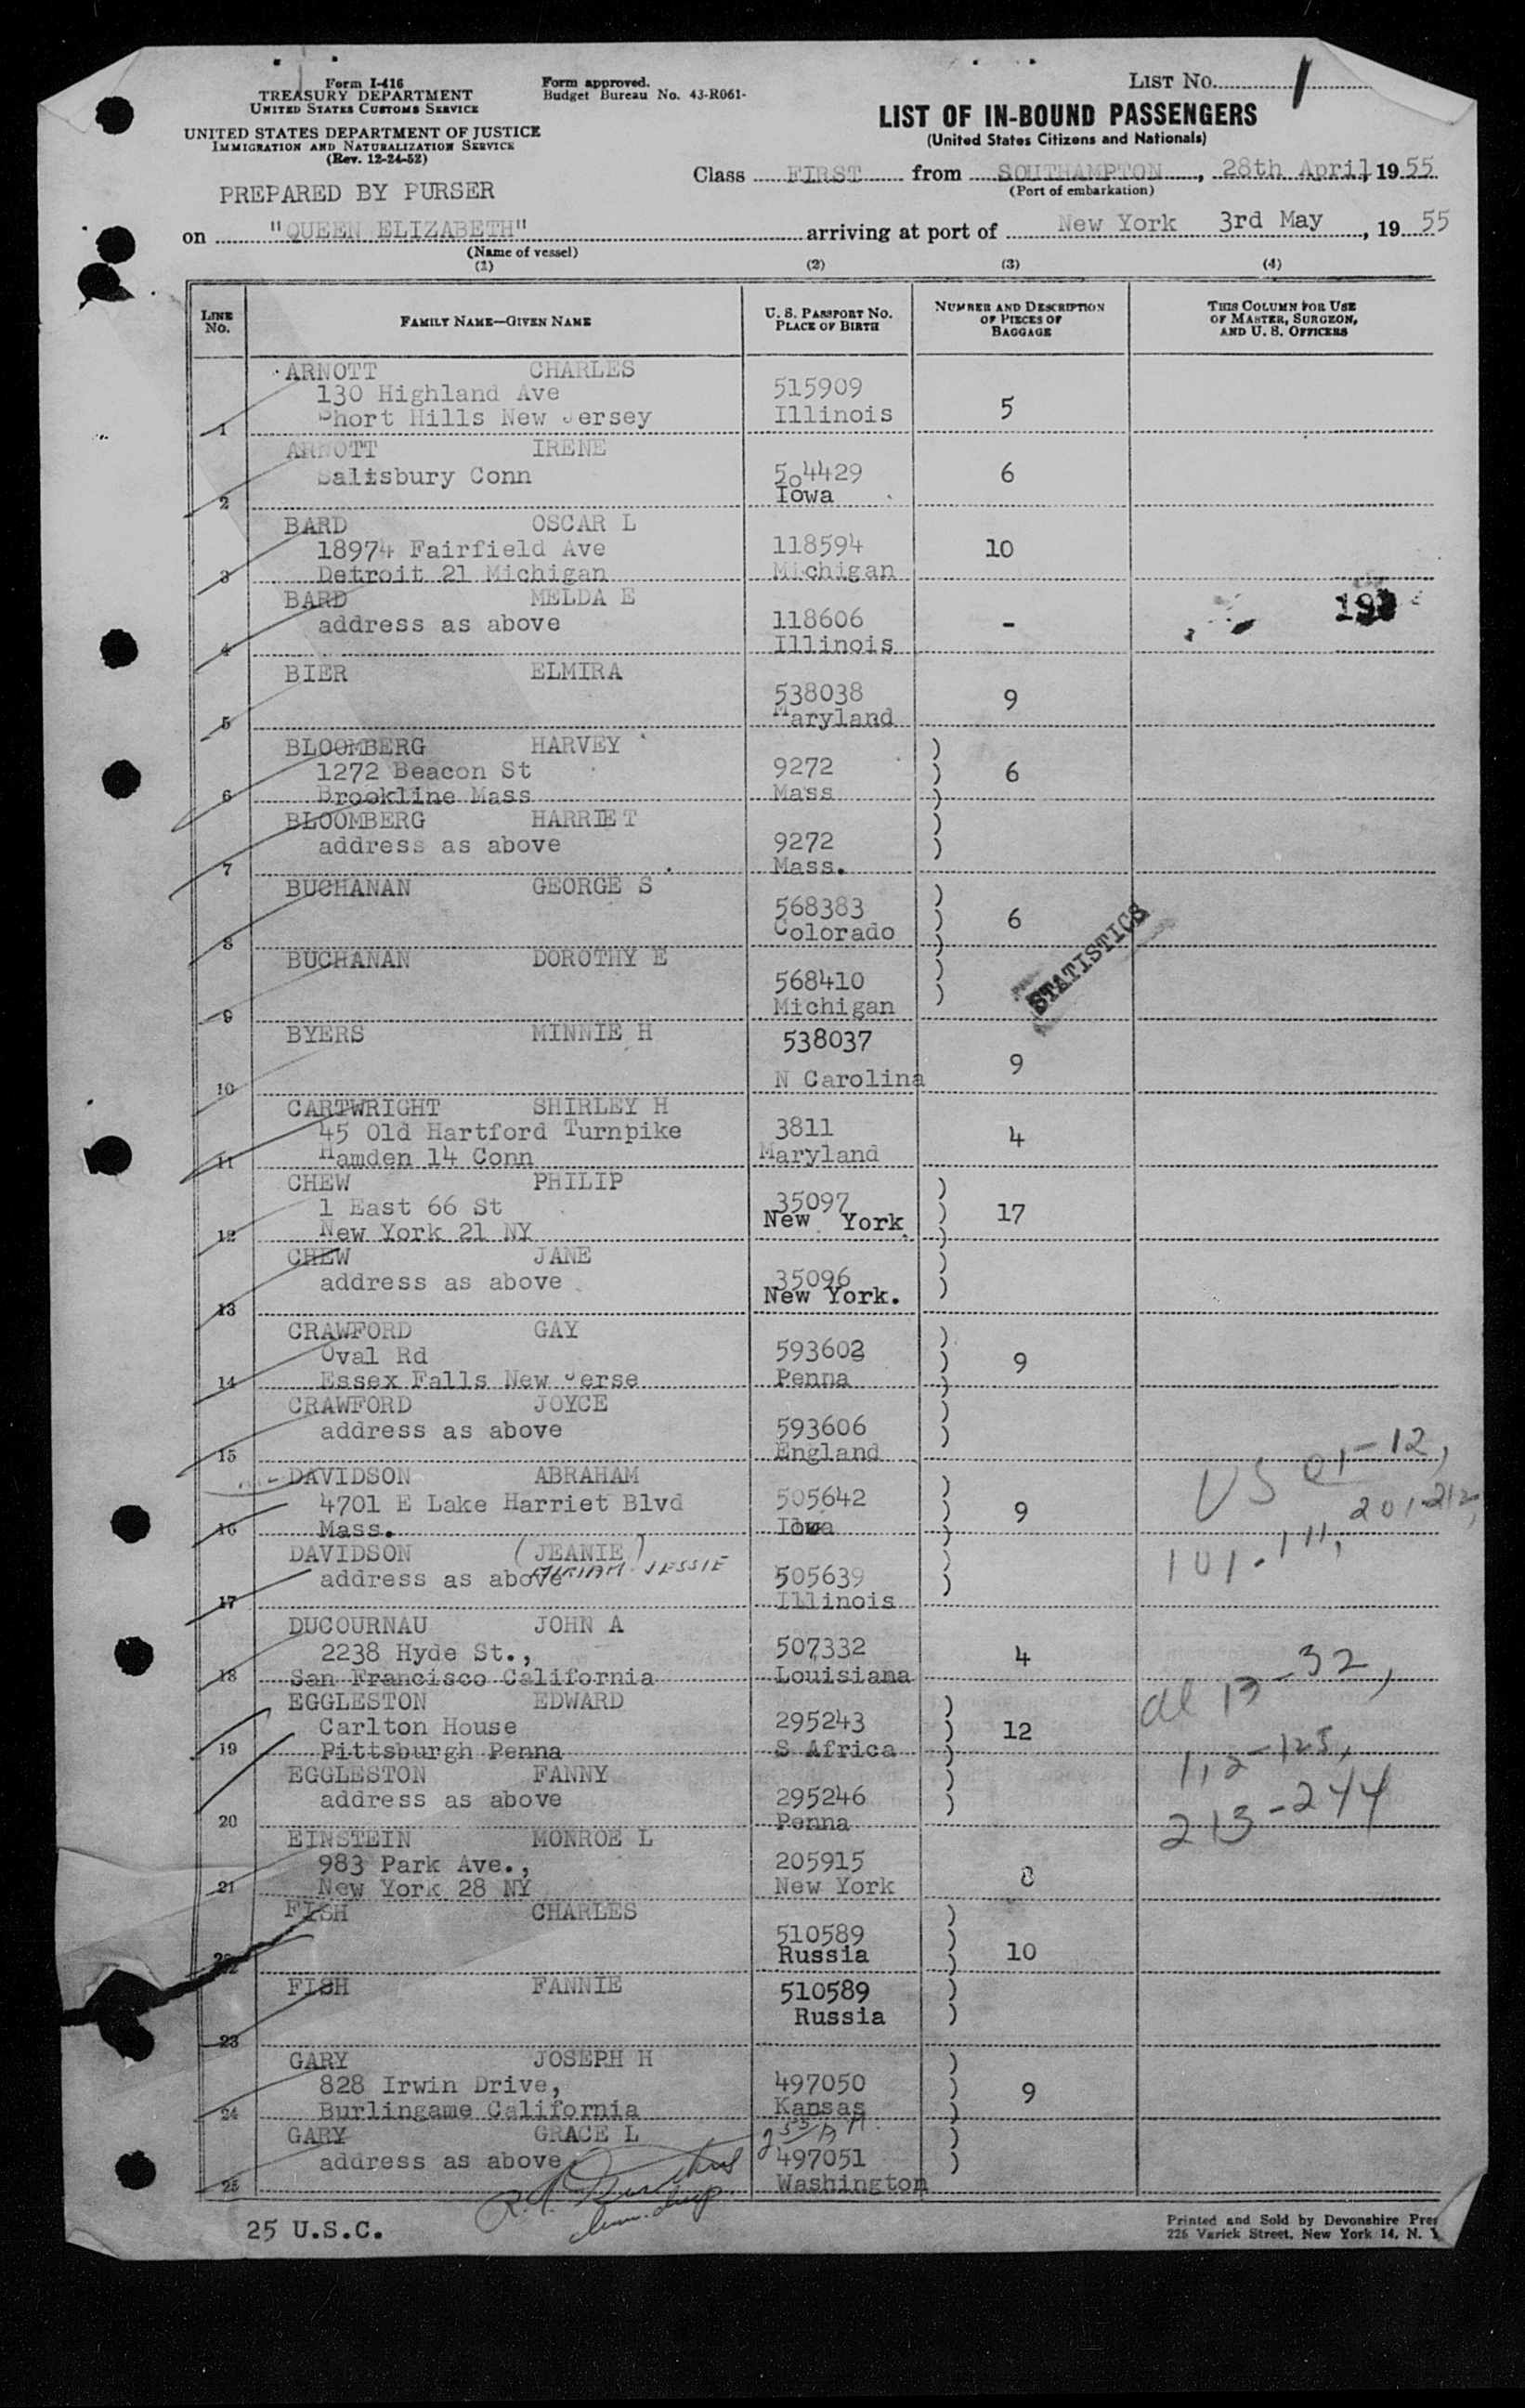 Form I-416
TREASURY DEPARTMENT
UNITED STATES CUSTOMS SERVICE
UNITED STATES DEPARTMENT OF JUSTICE
IMMIGRATION AND NATURALIZATION SERVICE
(Rev. 12-24-52)
Form approved.
Budget Bureau No. 43-R061-
LIST NO. 1
LIST OF IN-BOUND PASSENGERS
(United States Citizens and Nationals)
Class FIRST from SOUTHAMPTON, 28th April, 1955
(Port of embarkation)
PREPARED BY PURSER
on "QUEEN ELIZABETH" arriving at port of New York 3rd May, 19 55
(Name of vessel)
(1) (2) (3) (4)
LINE NO. FAMILY NAME—GIVEN NAME U. S. PASSPORT NO. PLACE OF BIRTH NUMBER AND DESCRIPTION OF PIECES OF BAGGAGE THIS COLUMN FOR USE OF MASTER, SURGEON, AND U. S. OFFICERS
ARNOTT CHARLES
130 Highland Ave 515909
1 Short Hills New Jersey Illinois 5
ARNOTT IRENE
Salisbury Conn 504429 6
2 Iowa
BARD OSCAR L
18974 Fairfield Ave 118594 10
3 Detroit 21 Michigan Michigan
BARD MELDA E
address as above 118606 -
4 Illinois
BIER ELMIRA
538038 9
5 Maryland
BLOOMBERG HARVEY
1272 Beacon St 9272 ) 6
6 Brookline Mass Mass
BLOOMBERG HARRIET
address as above 9272 )
7 Mass.
BUCHANAN GEORGE S
568383 ) 6
8 Colorado
BUCHANAN DOROTHY E
568410 )
9 Michigan
STATISTICS
BYERS MINNIE H 538037
9
10 N Carolina
CARTWRIGHT SHIRLEY H
45 Old Hartford Turnpike 3811 4
11 Hamden 14 Conn Maryland
CHEW PHILIP
1 East 66 St 35097 ) 17
12 New York 21 NY New York
CHEW JANE
address as above 35096 )
13 New York.
CRAWFORD GAY
Oval Rd 593602 ) 9
14 Essex Falls New Jerse Penna
CRAWFORD JOYCE
address as above 593606 )
15 England
DAVIDSON ABRAHAM
4701 E Lake Harriet Blvd 505642 ) 9
16 Mass. Iowa
DAVIDSON (JEANIE)
MIRIAM JESSIE
address as above 505639 )
17 Illinois
US 01-12,
201-212,
101-111,
DUCOURNAU JOHN A
2238 Hyde St., 507332 4
18 San Francisco California Louisiana
EGGLESTON EDWARD
Carlton House 295243 ) 12
19 Pittsburgh Penna S Africa
EGGLESTON FANNY
address as above 295246 )
20 Penna
al 13-32,
112-125,
213-244
EINSTEIN MONROE L
983 Park Ave., 205915 8
21 New York 28 NY New York
FISH CHARLES
510589 ) 10
22 Russia
FISH FANNIE 510589 )
Russia
23
GARY JOSEPH H
828 Irwin Drive, 497050 ) 9
24 Burlingame California Kansas
GARY GRACE L
address as above 497051 )
25 Washington
25 U.S.C.
Printed and Sold by Devonshire Pres
226 Varick Street, New York 14, N. Y